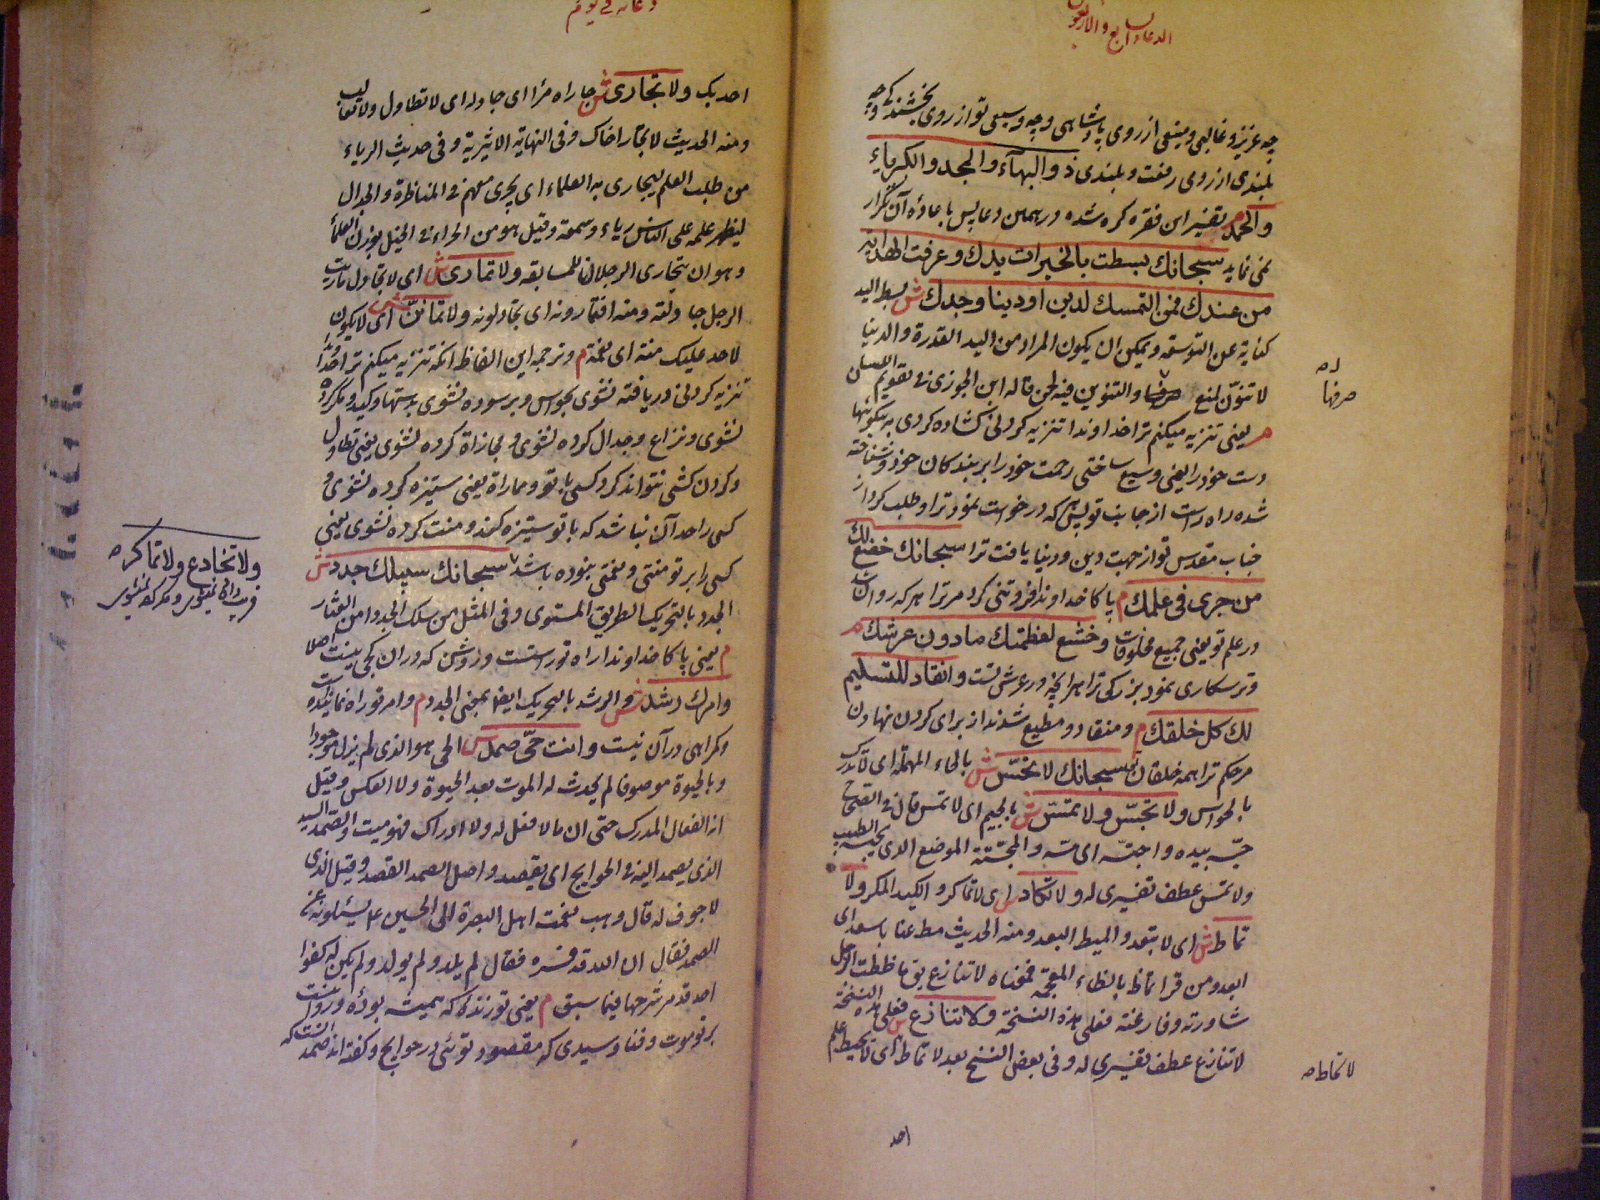 الدعاء السابع والاربعون
چه عزیز و غالبی و منیعی از روی پادشاهی و چه وسیعی تو از روی بخشندگی و چه
بلندی از روی رفعت و بلندی ذو البهآء والمجد والکبریاء
والحمد م تفسیر این فقره کرده شده در همین دعا پس باعاده آن تکرار
نمی نماید سبحانك بسطت بالخیرات یدك وعرفت الهدایة
من عندك فمن التمسك لدین او دنیا وجدك ش بسط الید
کنایة عن التوسعه ویمکن ان یکون المراد من الید القدرة والدنیا
لا تنون لمنع صرفها والتنوین فیه لحن قاله ابن الجوزی فی تقویم اللسان
م یعنی تنزیه میکنم ترا خداوندا تنزیه کردنی کشاده کردی به نیکوئیها
دست خود را یعنی وسیع ساختی رحمت خود را بر بندکان خود وشناخته
شده راه راست از جانب تو پس هر که درخواست نمود ترا و طلب کرد از
جناب مقدس تو از جهت دین و دنیا یافت ترا سبحانك خضع لك
من جری فی علمك م پاکا خداوندا فروتنی کرد مر ترا هر که روان شد
در علم تو یعنی جمیع مخلوقات وخشع لعظمتك ما دون عرشك م
وترسکاری نمود بزرکی ترا هر آنچه در عرش تست وانقاد للتسلیم
لك کل خلقك م ومنقاد و مطیع شدند از برای کردن نهادن
مر حکم ترا همه خلقان تو سبحانك لا تحسّ ش بالحاء المهملة ای لا تدرک
بالحواس ولا تجسّ ولا تمسّ ش بالجیم ای لا تمس قال فی الصحاح
جسّه بیده واجتسّه ای مسّه والمجسّة الموضع الذی یجسه الطبیب
ولا تمس عطف تفسیری له ولا تکاد ش ای لا تماکر والکید المکر ولا
تماط ش ای لا تبعد والمیط البعد ومنه الحدیث مط عنا یا سعد ای
ابعد ومن قرأ تماظ بالظاء المعجمة فمعناه لا تنازع یق ماظظت الرجل
شاورته وفارغته فعلی هذه النسخة ولا تنازع ش فعلی هذه النسخة
لا تنازع عطف تفسیری له وفی بعض النسخ بعد لا تماط لا تحاط ای لا یحیط علم
صرفها صه
لا تحاط صه
احد
دعائه فی یوم
احد بک ولا تجاری ش جاراه مرا ای جادله ای لا تطاول ولا تغالب
ومنه الحدیث لا تجار اخاک وفی النهایة الاثیریة وفی حدیث الریاء
من طلب العلم لیجاری به العلماء ای یجری معهم فی المناظرة والجدال
لیظهر علمه علی الناس ریاء وسمعة وقیل هو من الجراء فی الخیل بوزن العلماء
وهو ان یتجاری الرجلان للمسابقه ولا تماری ش ای لا تجادل ماریت
الرجل جادلته ومنه افتمارونه ای تجادلونه ولا تمانّ ش ای لا یکون
لاحد علیک منة ای نعمة م وترجمه این الفاظ آنکه تنزیه میکنم ترا خداوندا
تنزیه کردنی دریافته نشوی بحواس وبرسوده نشوی بدستها وکید ومکر کرده
نشوی ونزاع وجدال کرده نشوی ومجازاة کرده نشوی یعنی تطاول
وکردن کشی نتواند کرد کسی با تو ومماراة یعنی ستیزه کرده نشوی و
کسی را حد آن نباشد که با تو ستیزه کند ومنت کرده نشوی یعنی
کسی را بر تو منتی ونعمتی نبوده باشد سبحانك سبیلك جدد ش
الجدد بالتحریک الطریق المستوی وفی المثل من سلک الجدد امن العثار
م یعنی پاکا خداوندا راه تو راستست و روشن که در آن کجی نیست اصلا
وامرك رشد ش والرشد بالتحریک ایضا بمعنی الجدد م وامر تو راه نماینده
وکمراهی در آن نیست وانت حیّ صمد ش الحی هو الذی لم یزل موجودا
وبالحیوة موصوفا لم یحدث له الموت بعد الحیوة ولا العکس وقیل
انه الفعال المدرک حتی ان ما لا فعل له ولا ادراک فهو میت والصمد السید
الذی یصمد الیه فی الحوایج ای یقصد واصل الصمد القصد وقیل الذی
لا جوف له قال وهب بعث اهل البصرة الی الحسین ع یسئلونه عن
الصمد فقال ان الله قد فسره فقال لم یلد ولم یولد ولم یکن له کفوا
احد قد مر شرحها فیما سبق م یعنی تو زنده که همیشه بوده و روا نیست
بر تو موت وفنا وسیدی که مقصود توئی در حوایج وکفته اند صمد آنست که
ولا تخادع ولا تماکر صه
فریب داده نمیشوی ومکر کرده نمیشوی